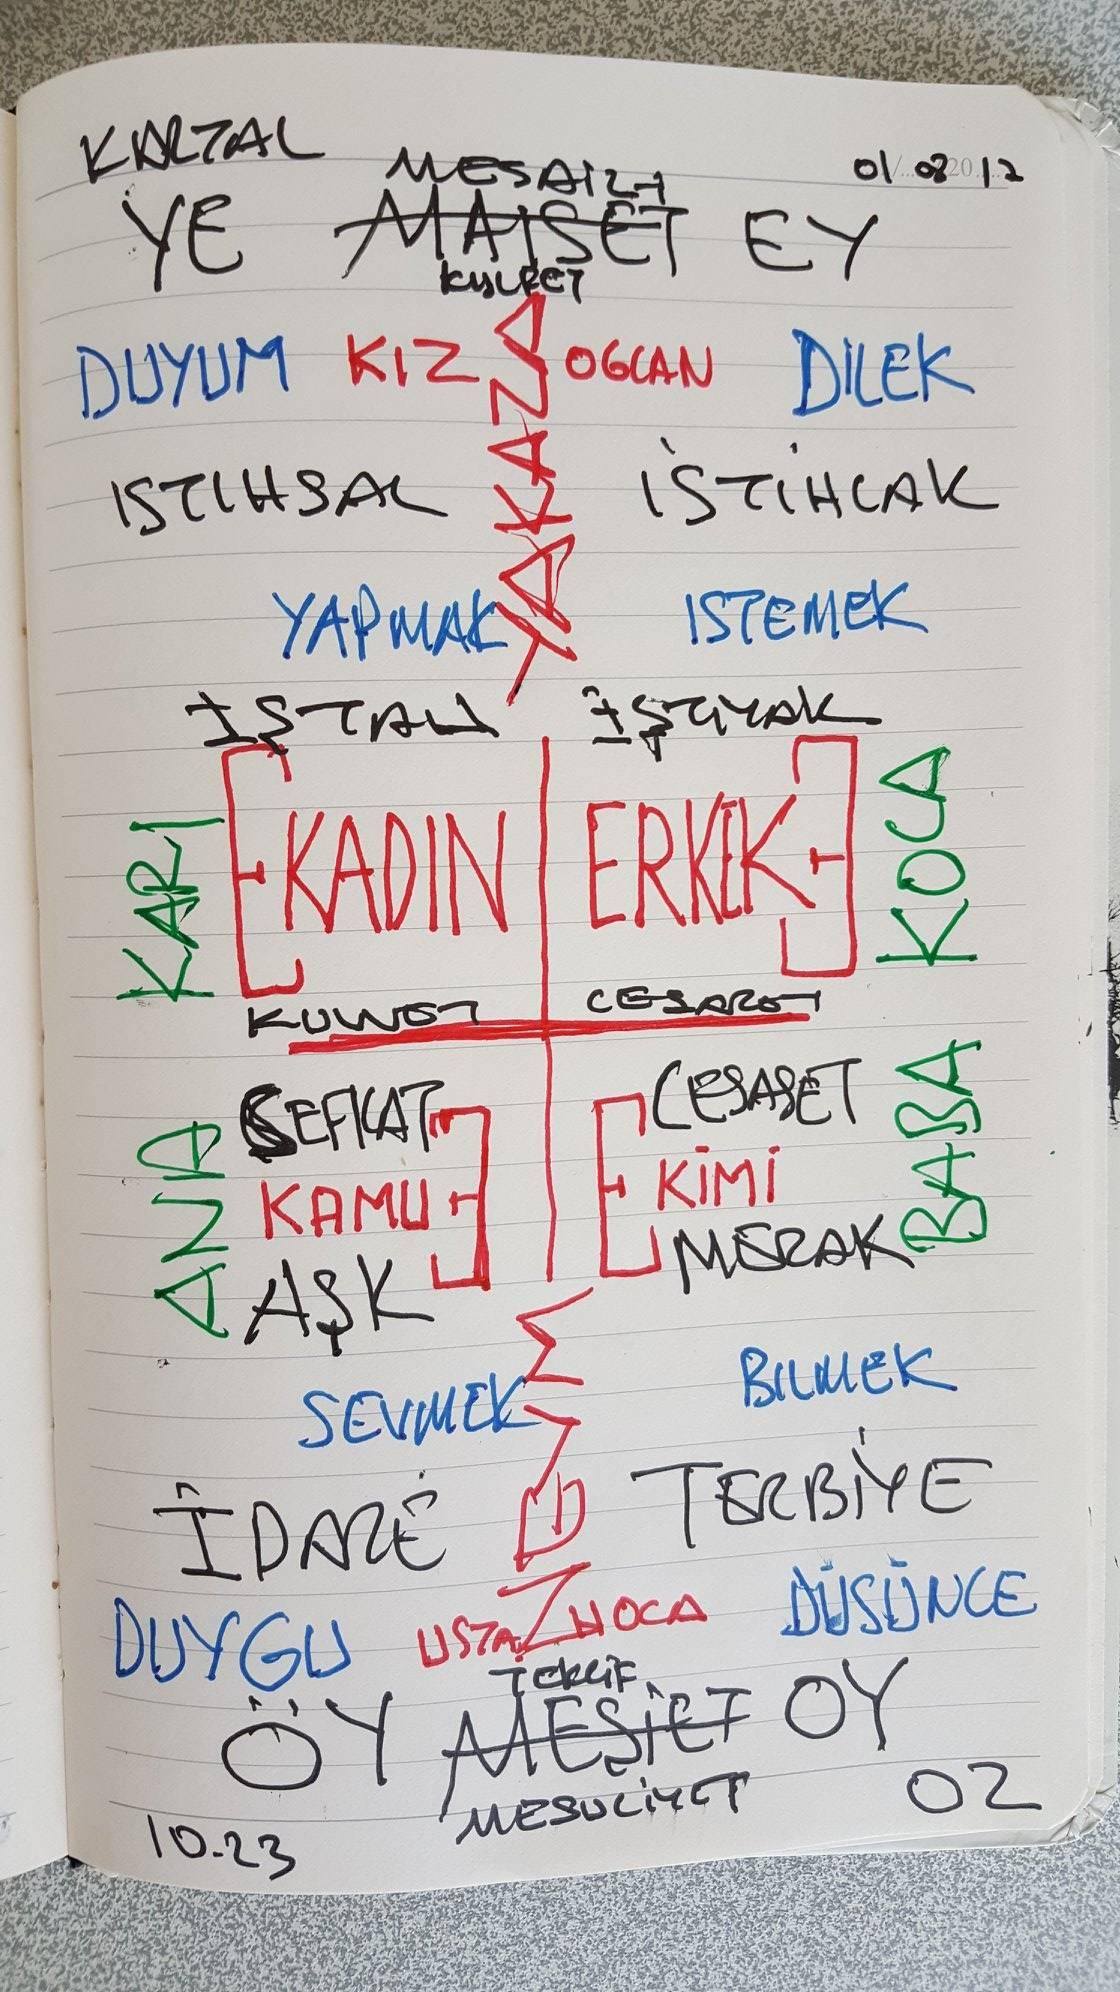 KARTAL
01/08 20 12
MESAİ
YE MAİŞET EY
KÜLFET
DUYUM KIZ OGLAN DİLEK
YAKAZA
ISTIHSAL İSTİHLAK
YAPMAK ISTEMEK
İŞTAH İŞTİYAK
KARI KADIN ERKİK KOCA
KUVVET CESARET
ANA ŞEFKAT CESARET BABA
KAMU KİMİ
AŞK MERAK
SEVMEK BILMEK
İDARE TERBİYE
DUYGU USTA HOCA DÜŞÜNCE
TEKLİF
ÖY MEŞİET OY
MESULİYET
02
10.23